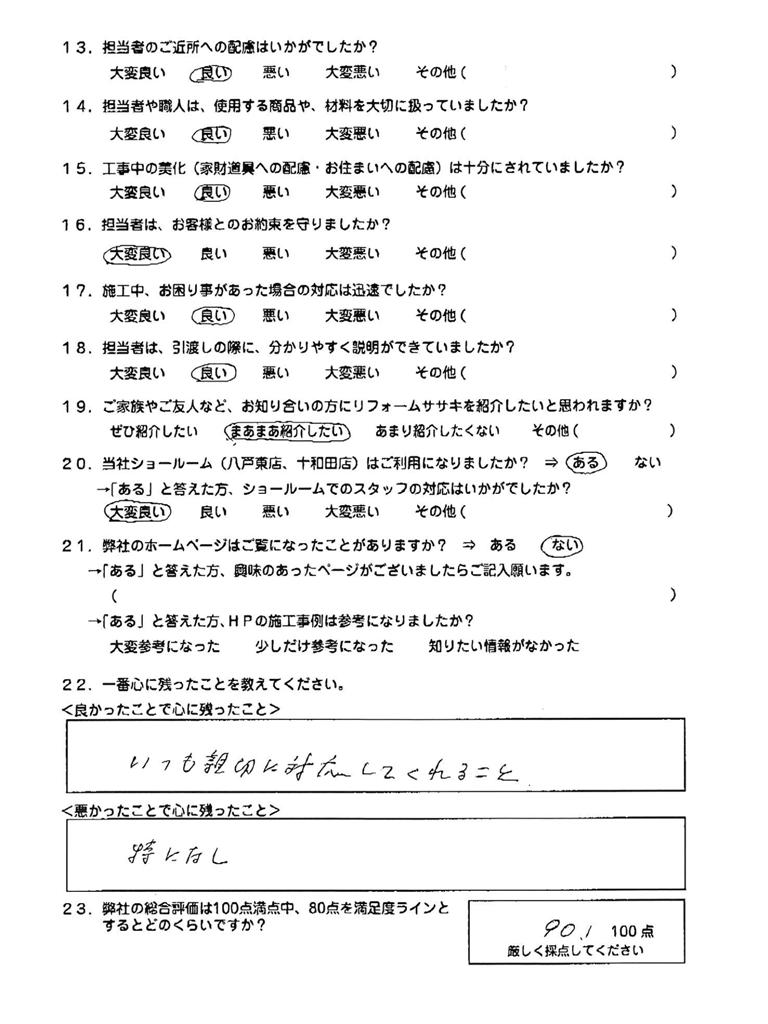 13．担当者のご近所への配慮はいかがでしたか？
大変良い 良い 悪い 大変悪い その他( )
14．担当者や職人は、使用する商品や、材料を大切に扱っていましたか？
大変良い 良い 悪い 大変悪い その他( )
15．工事中の美化（家財道具への配慮・お住まいへの配慮）は十分にされていましたか？
大変良い 良い 悪い 大変悪い その他( )
16．担当者は、お客様とのお約束を守りましたか？
大変良い 良い 悪い 大変悪い その他( )
17．施工中、お困り事があった場合の対応は迅速でしたか？
大変良い 良い 悪い 大変悪い その他( )
18．担当者は、引渡しの際に、分かりやすく説明ができていましたか？
大変良い 良い 悪い 大変悪い その他( )
19．ご家族やご友人など、お知り合いの方にリフォームササキを紹介したいと思われますか？
ぜひ紹介したい まあまあ紹介したい あまり紹介したくない その他( )
20．当社ショールーム（八戸東店、十和田店）はご利用になりましたか？ ⇒ ある ない
→「ある」と答えた方、ショールームでのスタッフの対応はいかがでしたか？
大変良い 良い 悪い 大変悪い その他( )
21．弊社のホームページはご覧になったことがありますか？ ⇒ ある ない
→「ある」と答えた方、興味のあったページがございましたらご記入願います。
( )
→「ある」と答えた方、HPの施工事例は参考になりましたか？
大変参考になった 少しだけ参考になった 知りたい情報がなかった
22．一番心に残ったことを教えてください。
<良かったことで心に残ったこと>
いつも親切に対応してくれること
<悪かったことで心に残ったこと>
特になし
23．弊社の総合評価は100点満点中、80点を満足度ラインと
するとどのくらいですか？
90 / 100点
厳しく採点してください